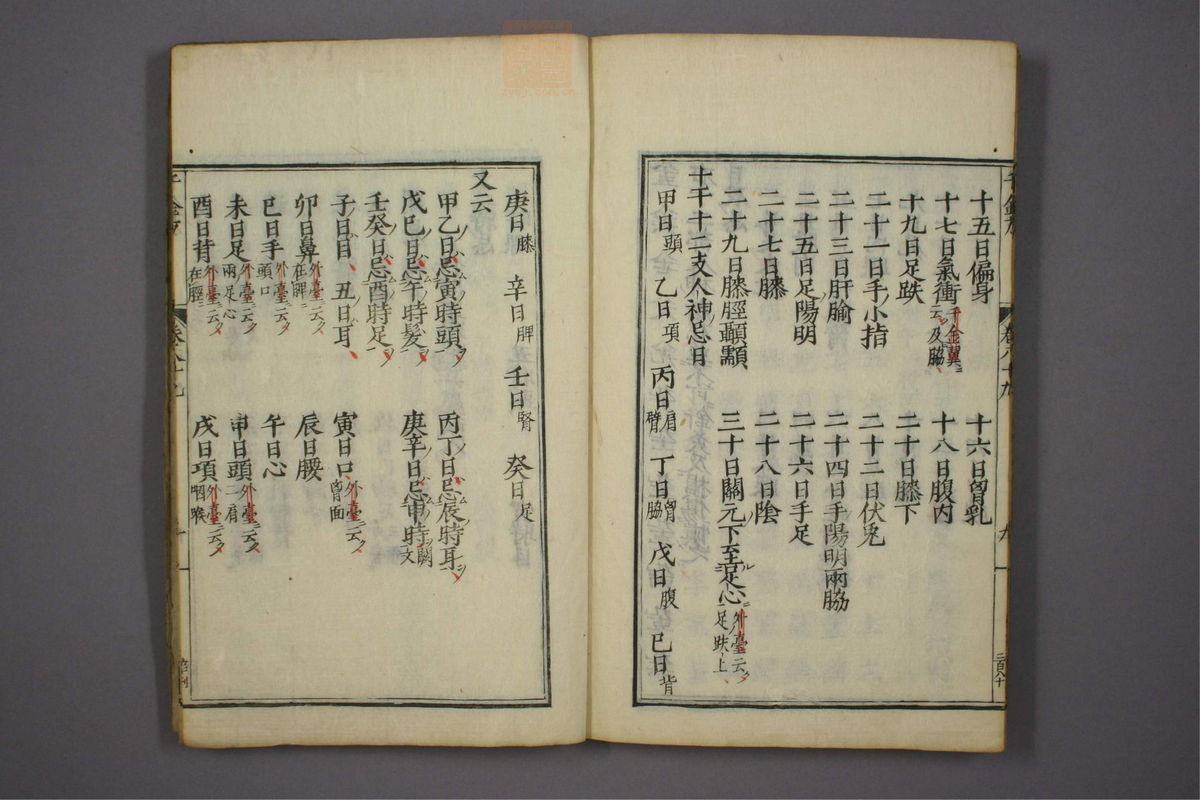 十五日偏身 十六日胷乳
十七日氣衝千金翼云及脇 十八日腹內
十九日足趺 二十日膝下
二十一日手小指 二十二日伏兎
二十三日肝腧 二十四日手陽明兩脇
二十五日足陽明 二十六日手足
二十七日膝 二十八日陰
二十九日膝脛顳顬 三十日關元下至足心外臺云足趺上
十干十二支人神忌日
甲日頭 乙日項 丙日肩臂 丁日胷脇 戊日腹 巳日背
庚日膝 辛日脾 壬日腎 癸日足
又云
甲乙日忌寅時頭 丙丁日忌辰時耳
戊巳日忌午時髮 庚辛日忌申時闕文
壬癸日忌酉時足
子日目 丑日耳 寅日口外臺云胷面
卯日鼻外臺云在脾 辰日腰
巳日手外臺云頭口 午日心
未日足外臺云兩足心 申日頭外臺云二肩
酉日背外臺云在脛 戌日項外臺云咽喉